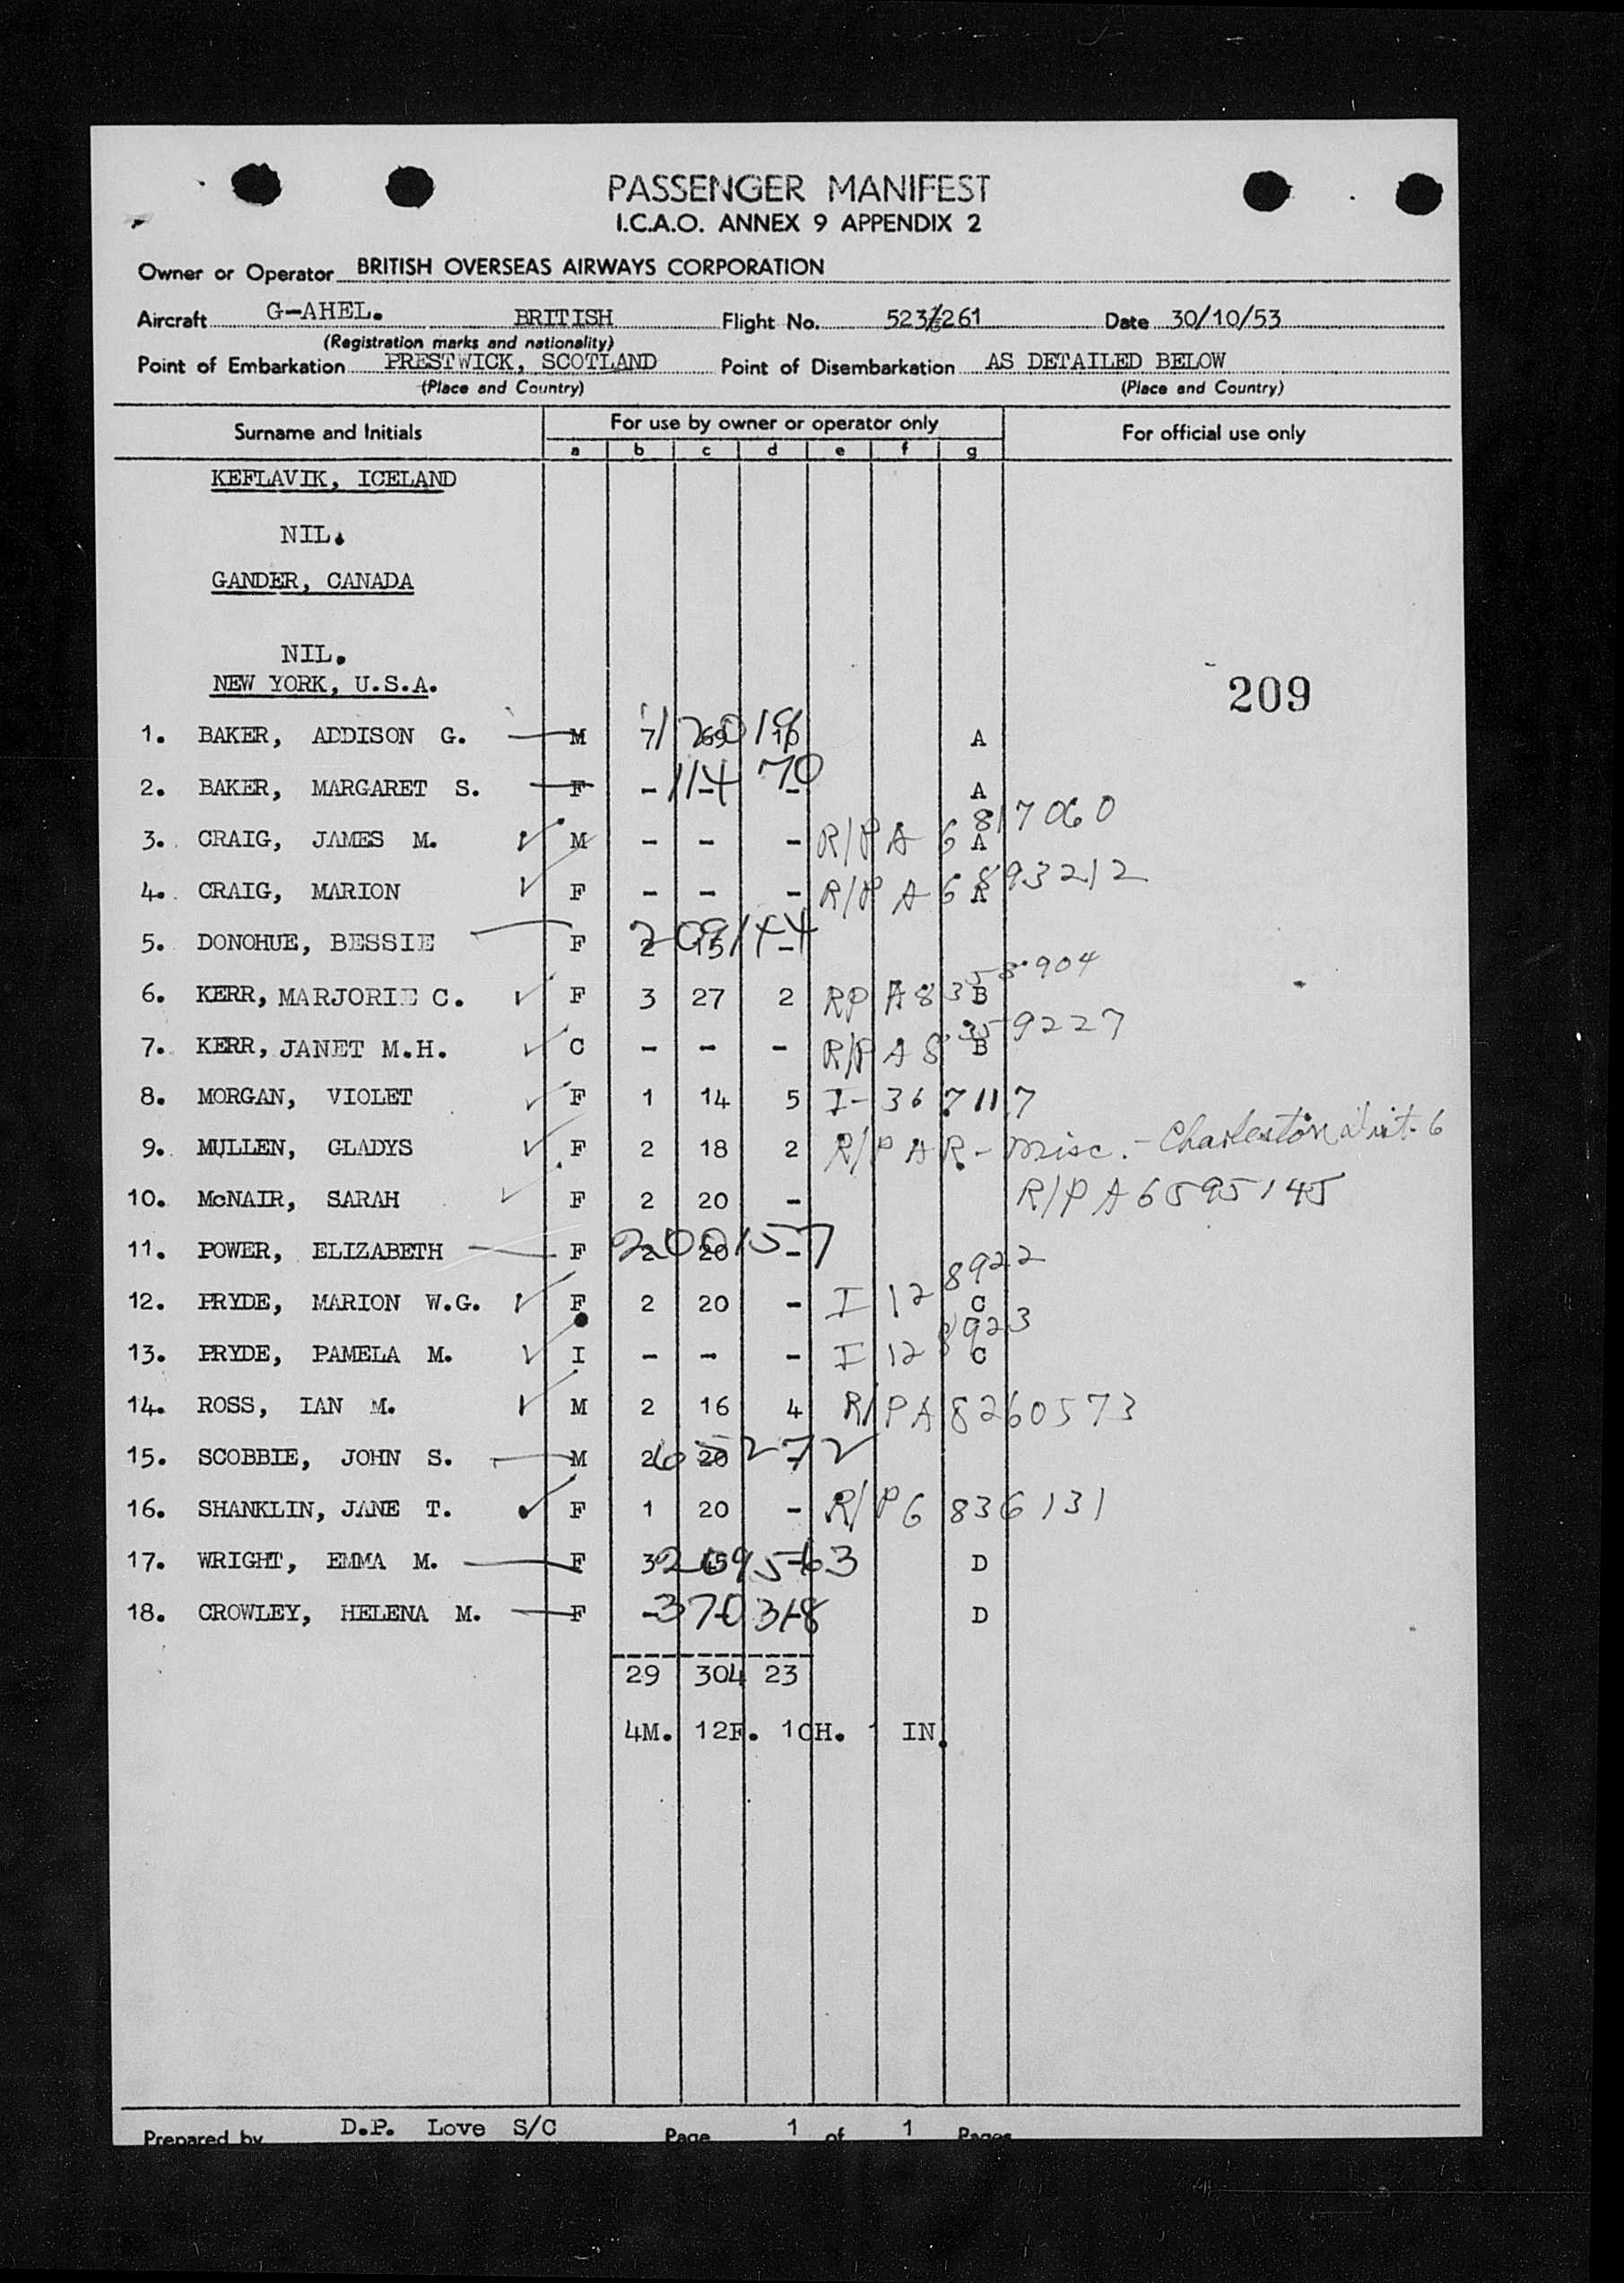 PASSENGER MANIFEST
I.C.A.O. ANNEX 9 APPENDIX 2
Owner or Operator BRITISH OVERSEAS AIRWAYS CORPORATION
Aircraft G-AHEL. BRITISH Flight No. 523/261 Date 30/10/53
(Registration marks and nationality)
Point of Embarkation PRESTWICK, SCOTLAND Point of Disembarkation AS DETAILED BELOW
(Place and Country) (Place and Country)
Surname and Initials For use by owner or operator only For official use only
a b c d e f g
KEFLAVIK, ICELAND
NIL.
GANDER, CANADA
NIL.
NEW YORK, U.S.A.
209
1. BAKER, ADDISON G. M 7 A
2. BAKER, MARGARET S. F - 114 70 - A
3. CRAIG, JAMES M. M - - - R/P A 6 817060 A
4. CRAIG, MARION F - - - R/P A 6 893212 A
5. DONOHUE, BESSIE F 2 15 - 209144
6. KERR, MARJORIE C. F 3 27 2 RP A 8358904 B
7. KERR, JANET M.H. C - - - R/P A 8359227 B
8. MORGAN, VIOLET F 1 14 5 I-367117
9. MULLEN, GLADYS F 2 18 2 R/P A R - Misc. - Charleston Dist. 6
10. McNAIR, SARAH F 2 20 - R/P A 6595145
11. POWER, ELIZABETH F 2 20 - 200157
12. PRYDE, MARION W.G. F 2 20 - I 128922 C
13. PRYDE, PAMELA M. I - - - I 128923 C
14. ROSS, IAN M. M 2 16 4 R/P A 8260573
15. SCOBBIE, JOHN S. M 2 20 -
16. SHANKLIN, JANE T. F 1 20 - R/P 6 836131
17. WRIGHT, EMMA M. F 3 45 - D
18. CROWLEY, HELENA M. F - - - 370318 D
29 304 23
4M. 12F. 1CH. 1 IN.
Prepared by D.P. Love S/C Page 1 of 1 Pages